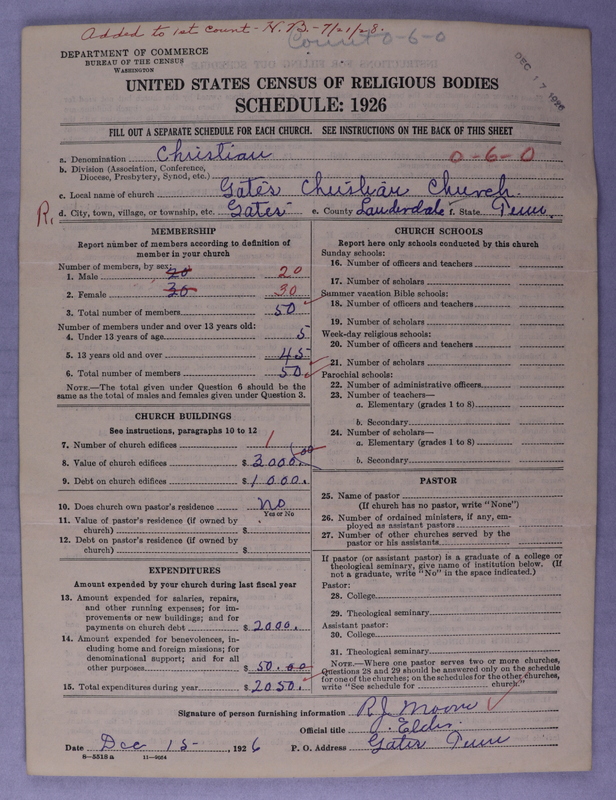 Added to 1st count - H.B. - 7/21/28.
Count 0-6-0
DEPARTMENT OF COMMERCE
BUREAU OF THE CENSUS
WASHINGTON
DEC 17 1926
UNITED STATES CENSUS OF RELIGIOUS BODIES
SCHEDULE: 1926
FILL OUT A SEPARATE SCHEDULE FOR EACH CHURCH. SEE INSTRUCTIONS ON THE BACK OF THIS SHEET
a. Denomination Christian 0-6-0
b. Division (Association, Conference,
Diocese, Presbytery, Synod, etc.)
c. Local name of church Gates Christian Church.
R. d. City, town, village, or township, etc. Gates e. County Lauderdale f. State Tenn.
MEMBERSHIP
Report number of members according to definition of
member in your church
Number of members, by sex:
1. Male 20 20
2. Female 30 30
3. Total number of members 50
Number of members under and over 13 years old:
4. Under 13 years of age 5
5. 13 years old and over 45
6. Total number of members 50
NOTE.—The total given under Question 6 should be the
same as the total of males and females given under Question 3.
CHURCH BUILDINGS
See instructions, paragraphs 10 to 12
7. Number of church edifices 1
8. Value of church edifices $ 3000.00
9. Debt on church edifices $ 1000.
10. Does church own pastor's residence no
Yes or No
11. Value of pastor's residence (if owned by
church) $
12. Debt on pastor's residence (if owned by
church) $
EXPENDITURES
Amount expended by your church during last fiscal year
13. Amount expended for salaries, repairs,
and other running expenses; for im-
provements or new buildings; and for
payments on church debt $ 2000.
14. Amount expended for benevolences, in-
cluding home and foreign missions; for
denominational support; and for all
other purposes $ 50.00
15. Total expenditures during year $ 2050.
CHURCH SCHOOLS
Report here only schools conducted by this church
Sunday schools:
16. Number of officers and teachers
17. Number of scholars
Summer vacation Bible schools:
18. Number of officers and teachers
19. Number of scholars
Week-day religious schools:
20. Number of officers and teachers
21. Number of scholars
Parochial schools:
22. Number of administrative officers
23. Number of teachers—
a. Elementary (grades 1 to 8)
b. Secondary
24. Number of scholars—
a. Elementary (grades 1 to 8)
b. Secondary
PASTOR
25. Name of pastor
(If church has no pastor, write "None")
26. Number of ordained ministers, if any, em-
ployed as assistant pastors
27. Number of other churches served by the
pastor or his assistants
If pastor (or assistant pastor) is a graduate of a college or
theological seminary, give name of institution below. (If
not a graduate, write "No" in the space indicated.)
Pastor:
28. College
29. Theological seminary
Assistant pastor:
30. College
31. Theological seminary
NOTE.—Where one pastor serves two or more churches,
Questions 28 and 29 should be answered only on the schedule
for one of the churches; on the schedules for the other churches,
write "See schedule for church."
Signature of person furnishing information R.J. Moore
Official title Elder.
Date Dec 15, 1926 P. O. Address Gates Tenn
8—5518 a 11—9054